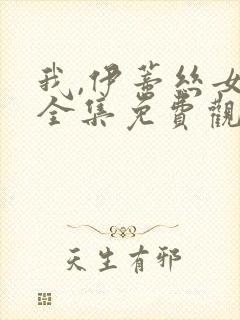 我,伊蕾絲女
全集免費觀
天生有邪